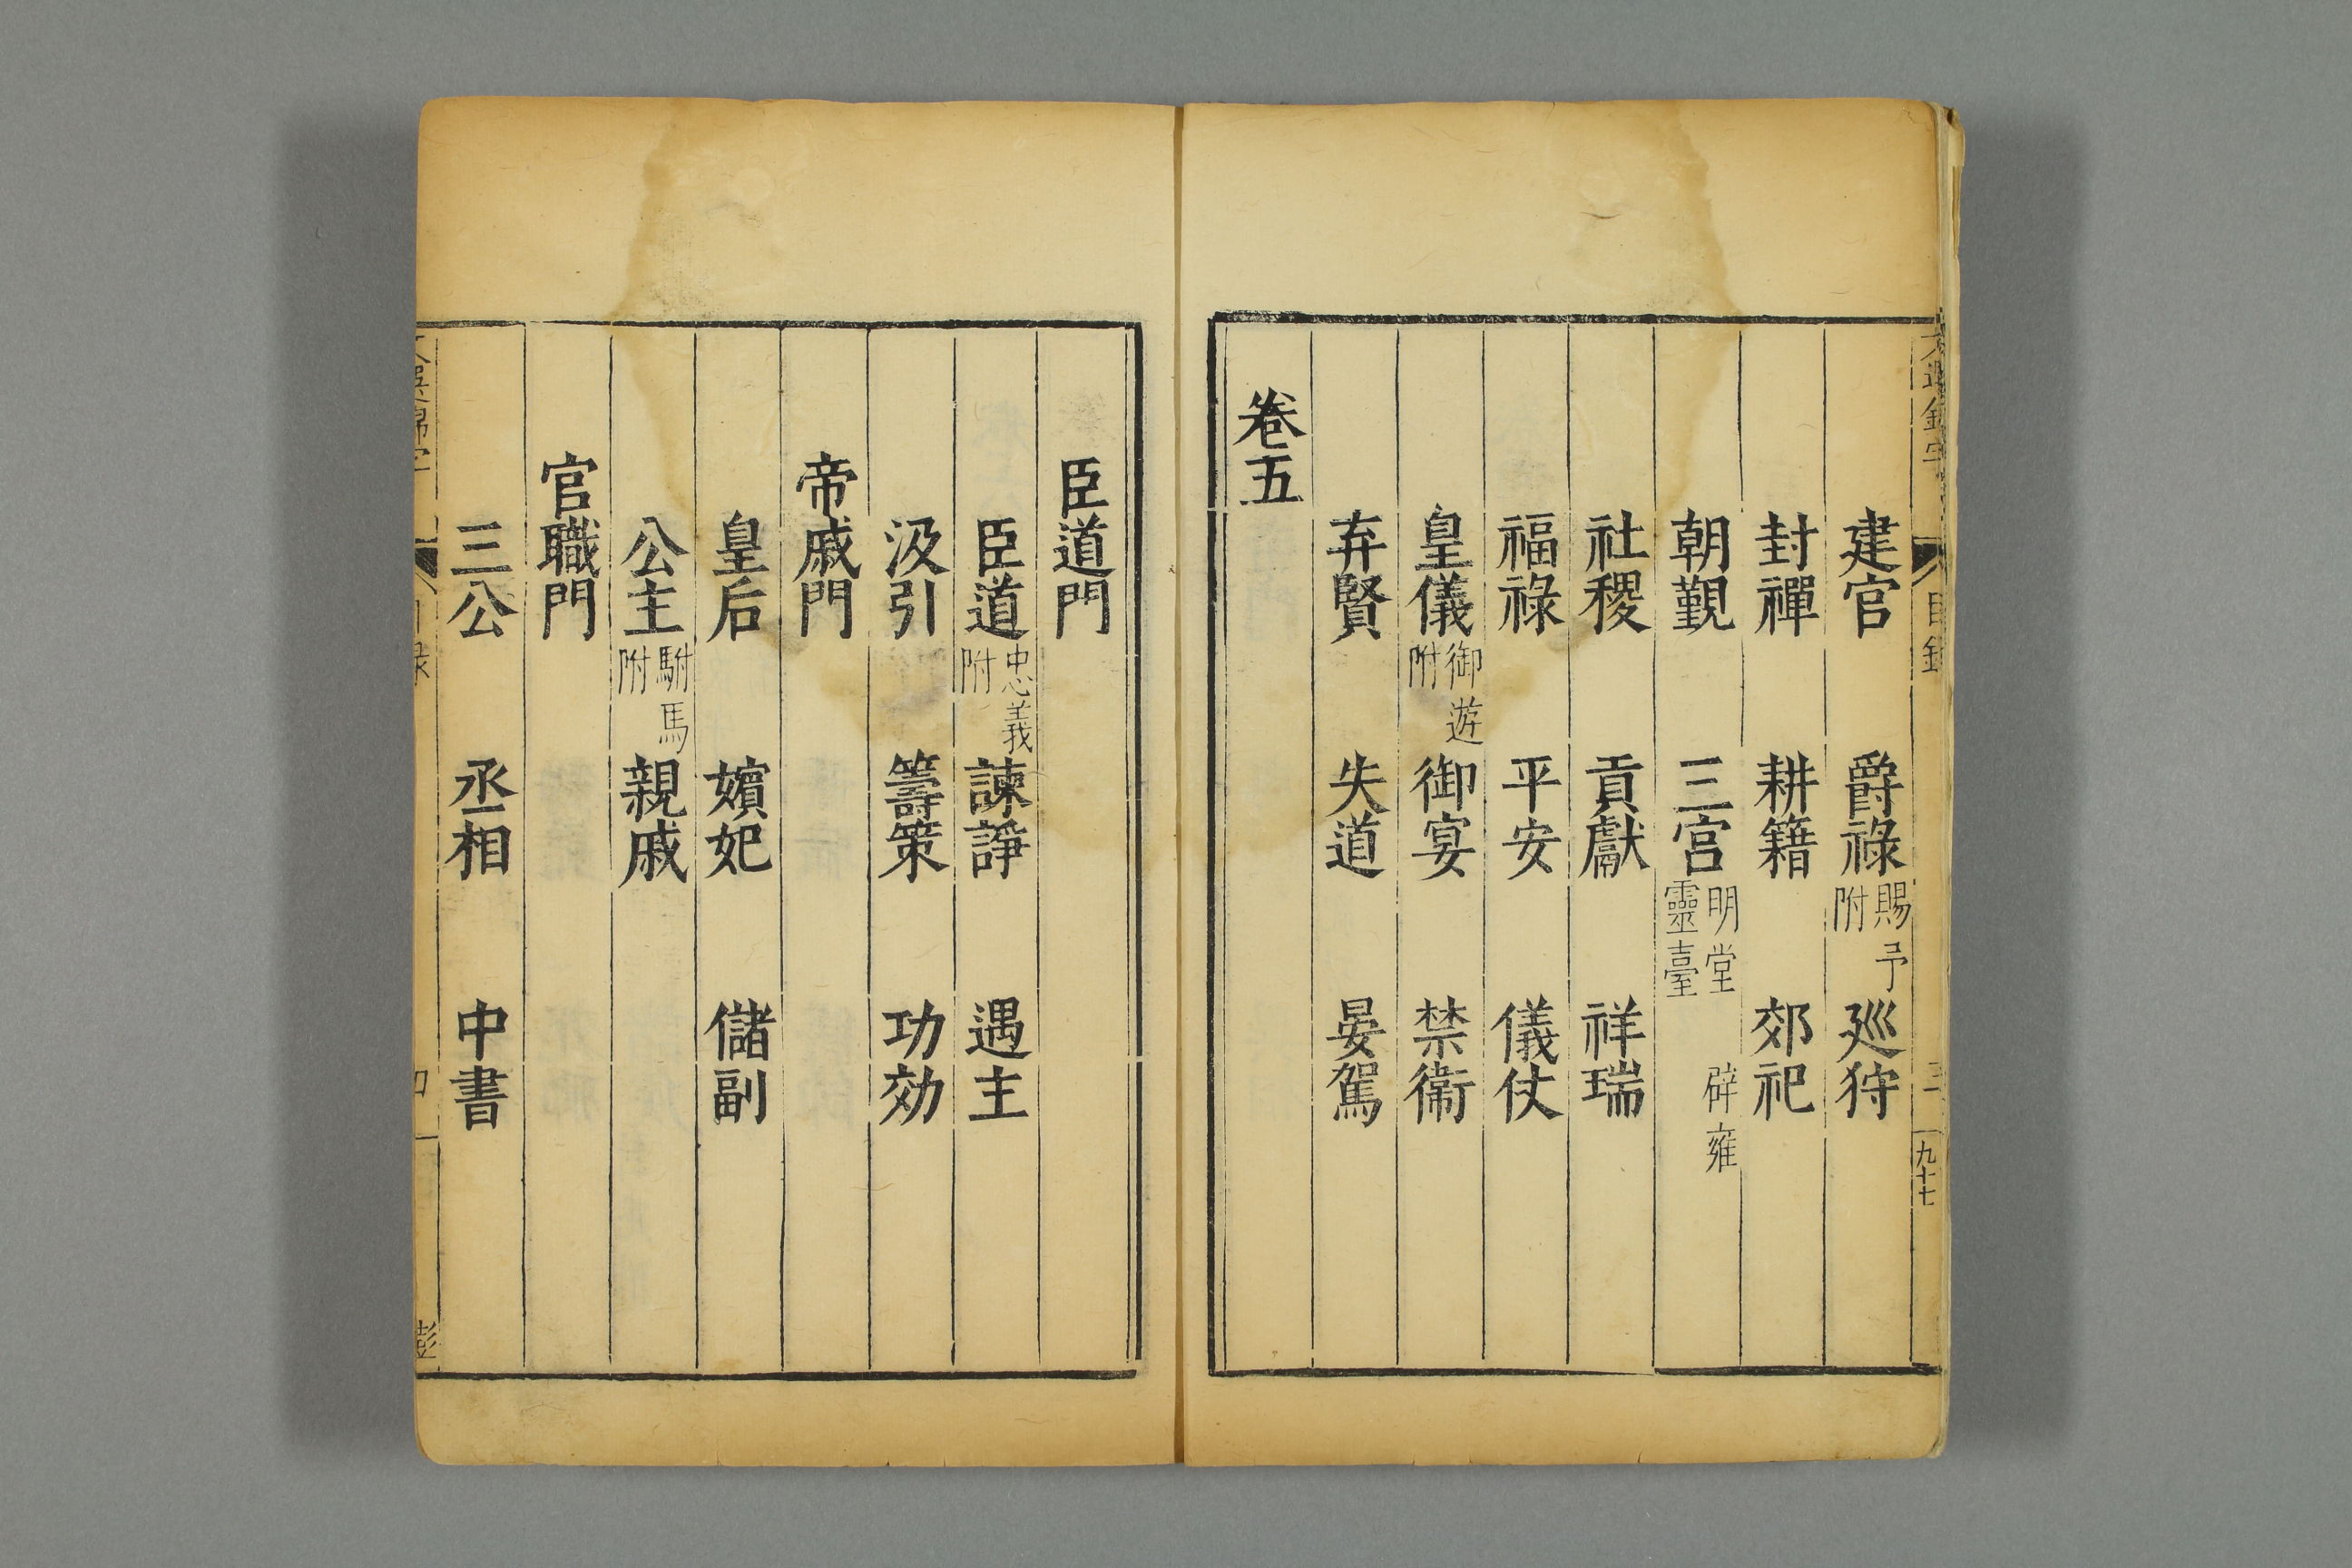 建官 爵祿 賜予附 廵狩
封禪 耕籍 郊祀
朝覲 三宮 明堂 辟雍 靈臺
社稷 貢獻 祥瑞
福祿 平安 儀仗
皇儀 御遊附 御宴 禁衞
弃賢 失道 晏駕
卷五
目錄
三
九十七
臣道門
臣道 忠義附 諫諍 遇主
汲引 籌策 功効
帝戚門
皇后 嬪妃 儲副
公主 駙馬附 親戚
官職門
三公 丞相 中書